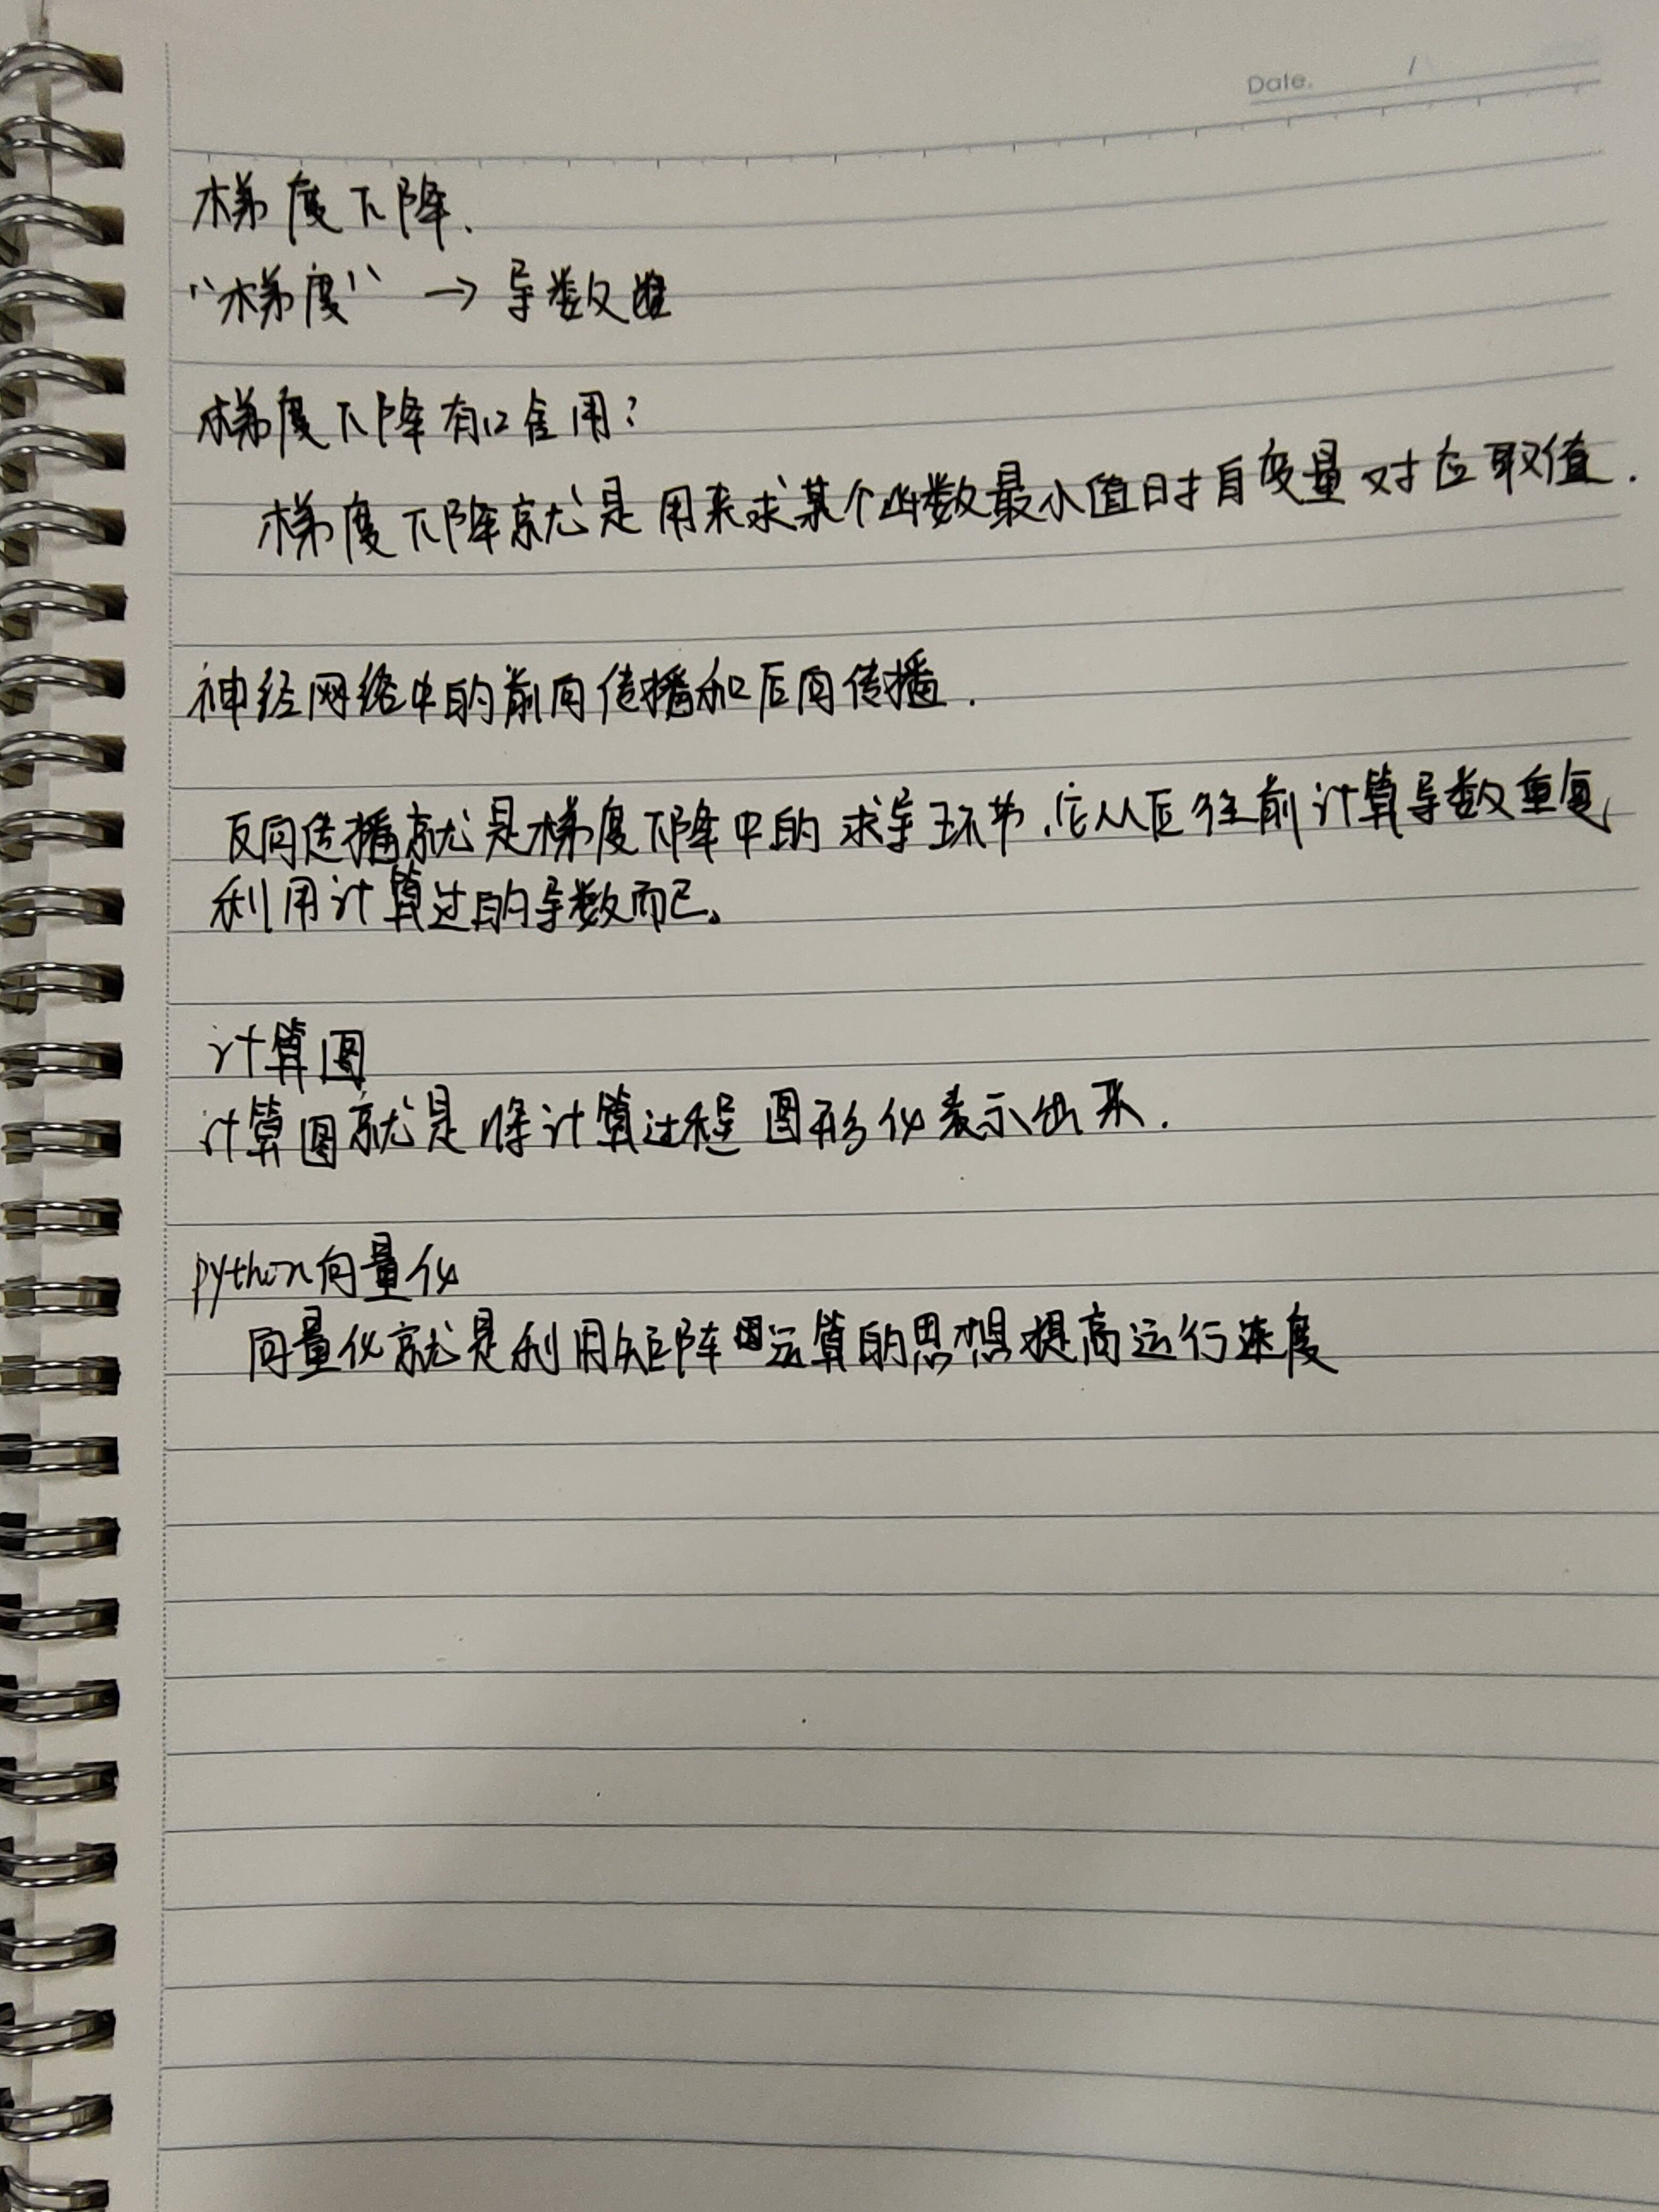 Date. /
梯度下降.
“梯度” → 导数
梯度下降有啥用?
梯度下降就是用来求某个函数最小值时自变量对应取值.
神经网络中的前向传播和后向传播.
反向传播就是梯度下降中的求导环节,它从后往前计算导数重复
利用计算过的导数而已。
计算图
计算图就是将计算过程图形化表示出来.
python向量化
向量化就是利用矩阵运算的思想提高运行速度